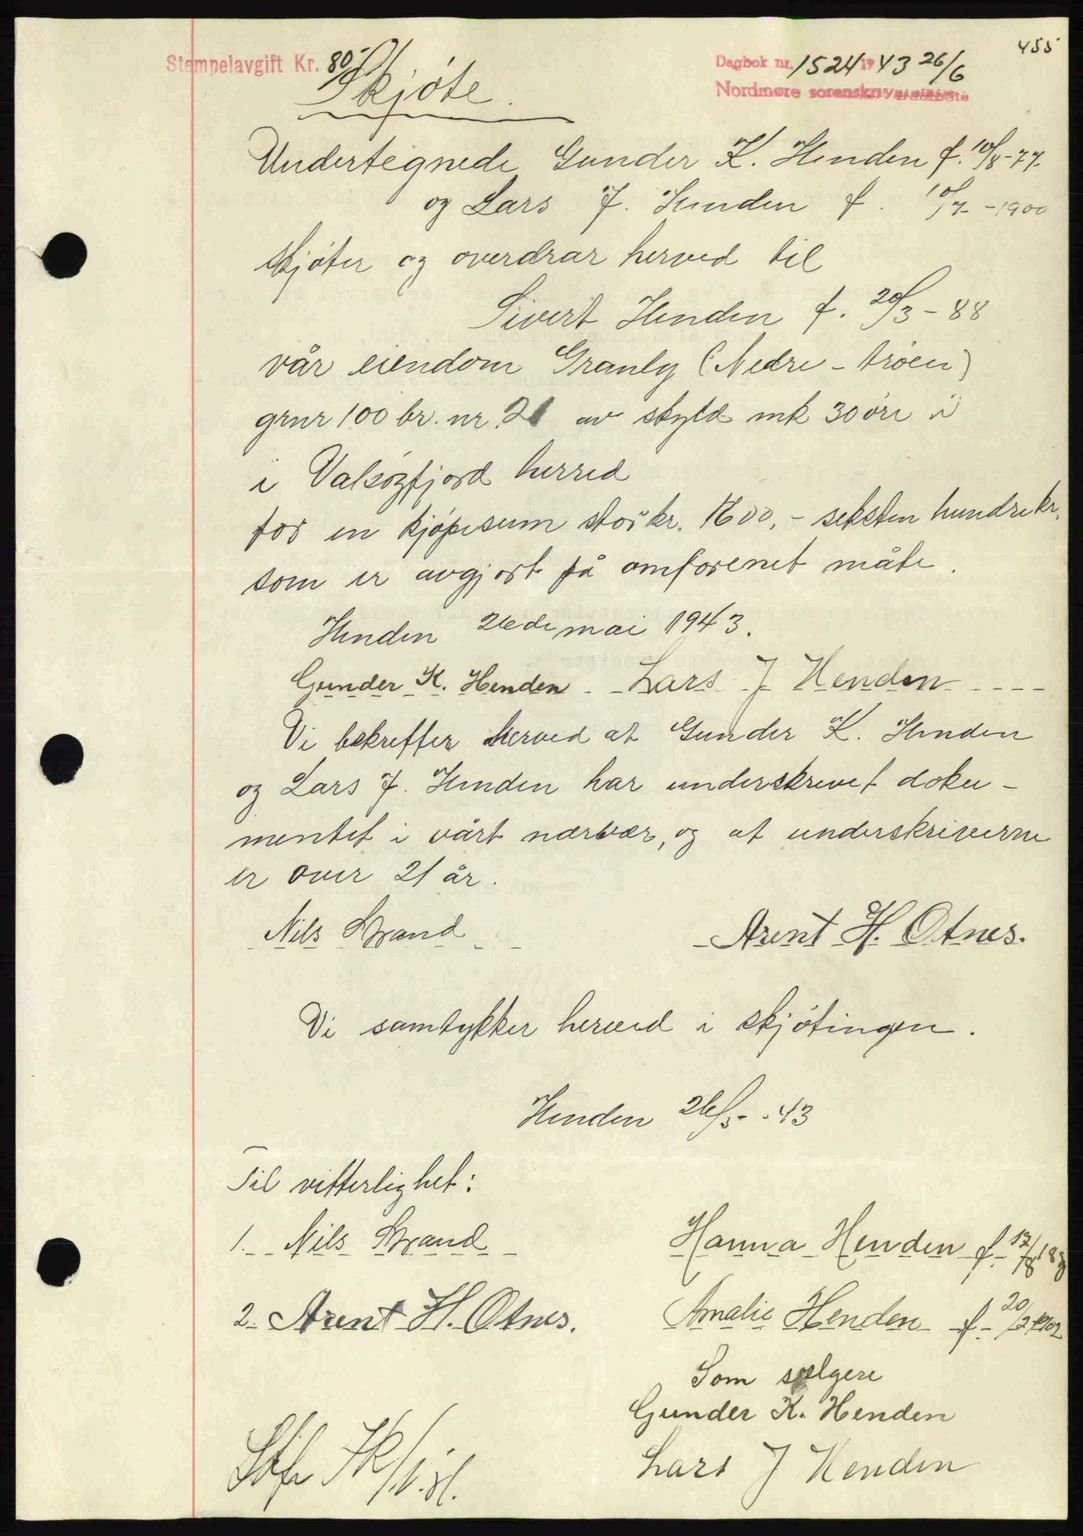 455
Stempelavgift Kr. 80,-
Dagbok nr. 1524 19 43 26/6
Nordmøre sorenskriverembete
Skjøte.
Undertegnede Gunder K. Henden f. 10/8-77.
og Lars J. Henden f. 10/7-1900
skjøter og overdrar herved til
Sivert Henden f. 20/3-88
vår eiendom Granly (Nedre-trøen)
grnr 100 br. nr. 21 av skyld mk 30 øre i
i Valsøyfjord herred
for en kjøpesum stor kr. 1600,- seksten hundre kr.
som er avgjort på omforenet måte.
Henden 26de mai 1943.
Gunder K. Henden Lars J Henden
Vi bekrefter herved at Gunder K. Henden
og Lars J. Henden har underskrevet doku-
mentet i vårt nærvær, og at underskriverne
er over 21 år.
Nils Strand Arent H. Otnes.
Vi samtykker herved i skjøtingen.
Henden 26/5-43
Til vitterlighet:
1. Nils Strand Hanna Henden f. 17/8
2. Arent H. Otnes. Amalie Henden f. 20/2 1902
Som selgere
Gunder K. Henden
Lars J Henden